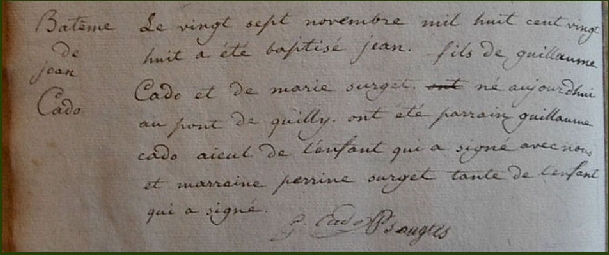 Batême
de
jean
Cado
Le vingt sept novembre mil huit cent vingt
huit a été baptisé jean. fils de guillaume
Cado et de marie surget. ont né aujourdhui
au pont de quilly. ont été parrain guillaume
cado aieul de l'enfant qui a signé avec nous
et marraine perrine surget tante de l'enfant
qui a signé.
g. Cado